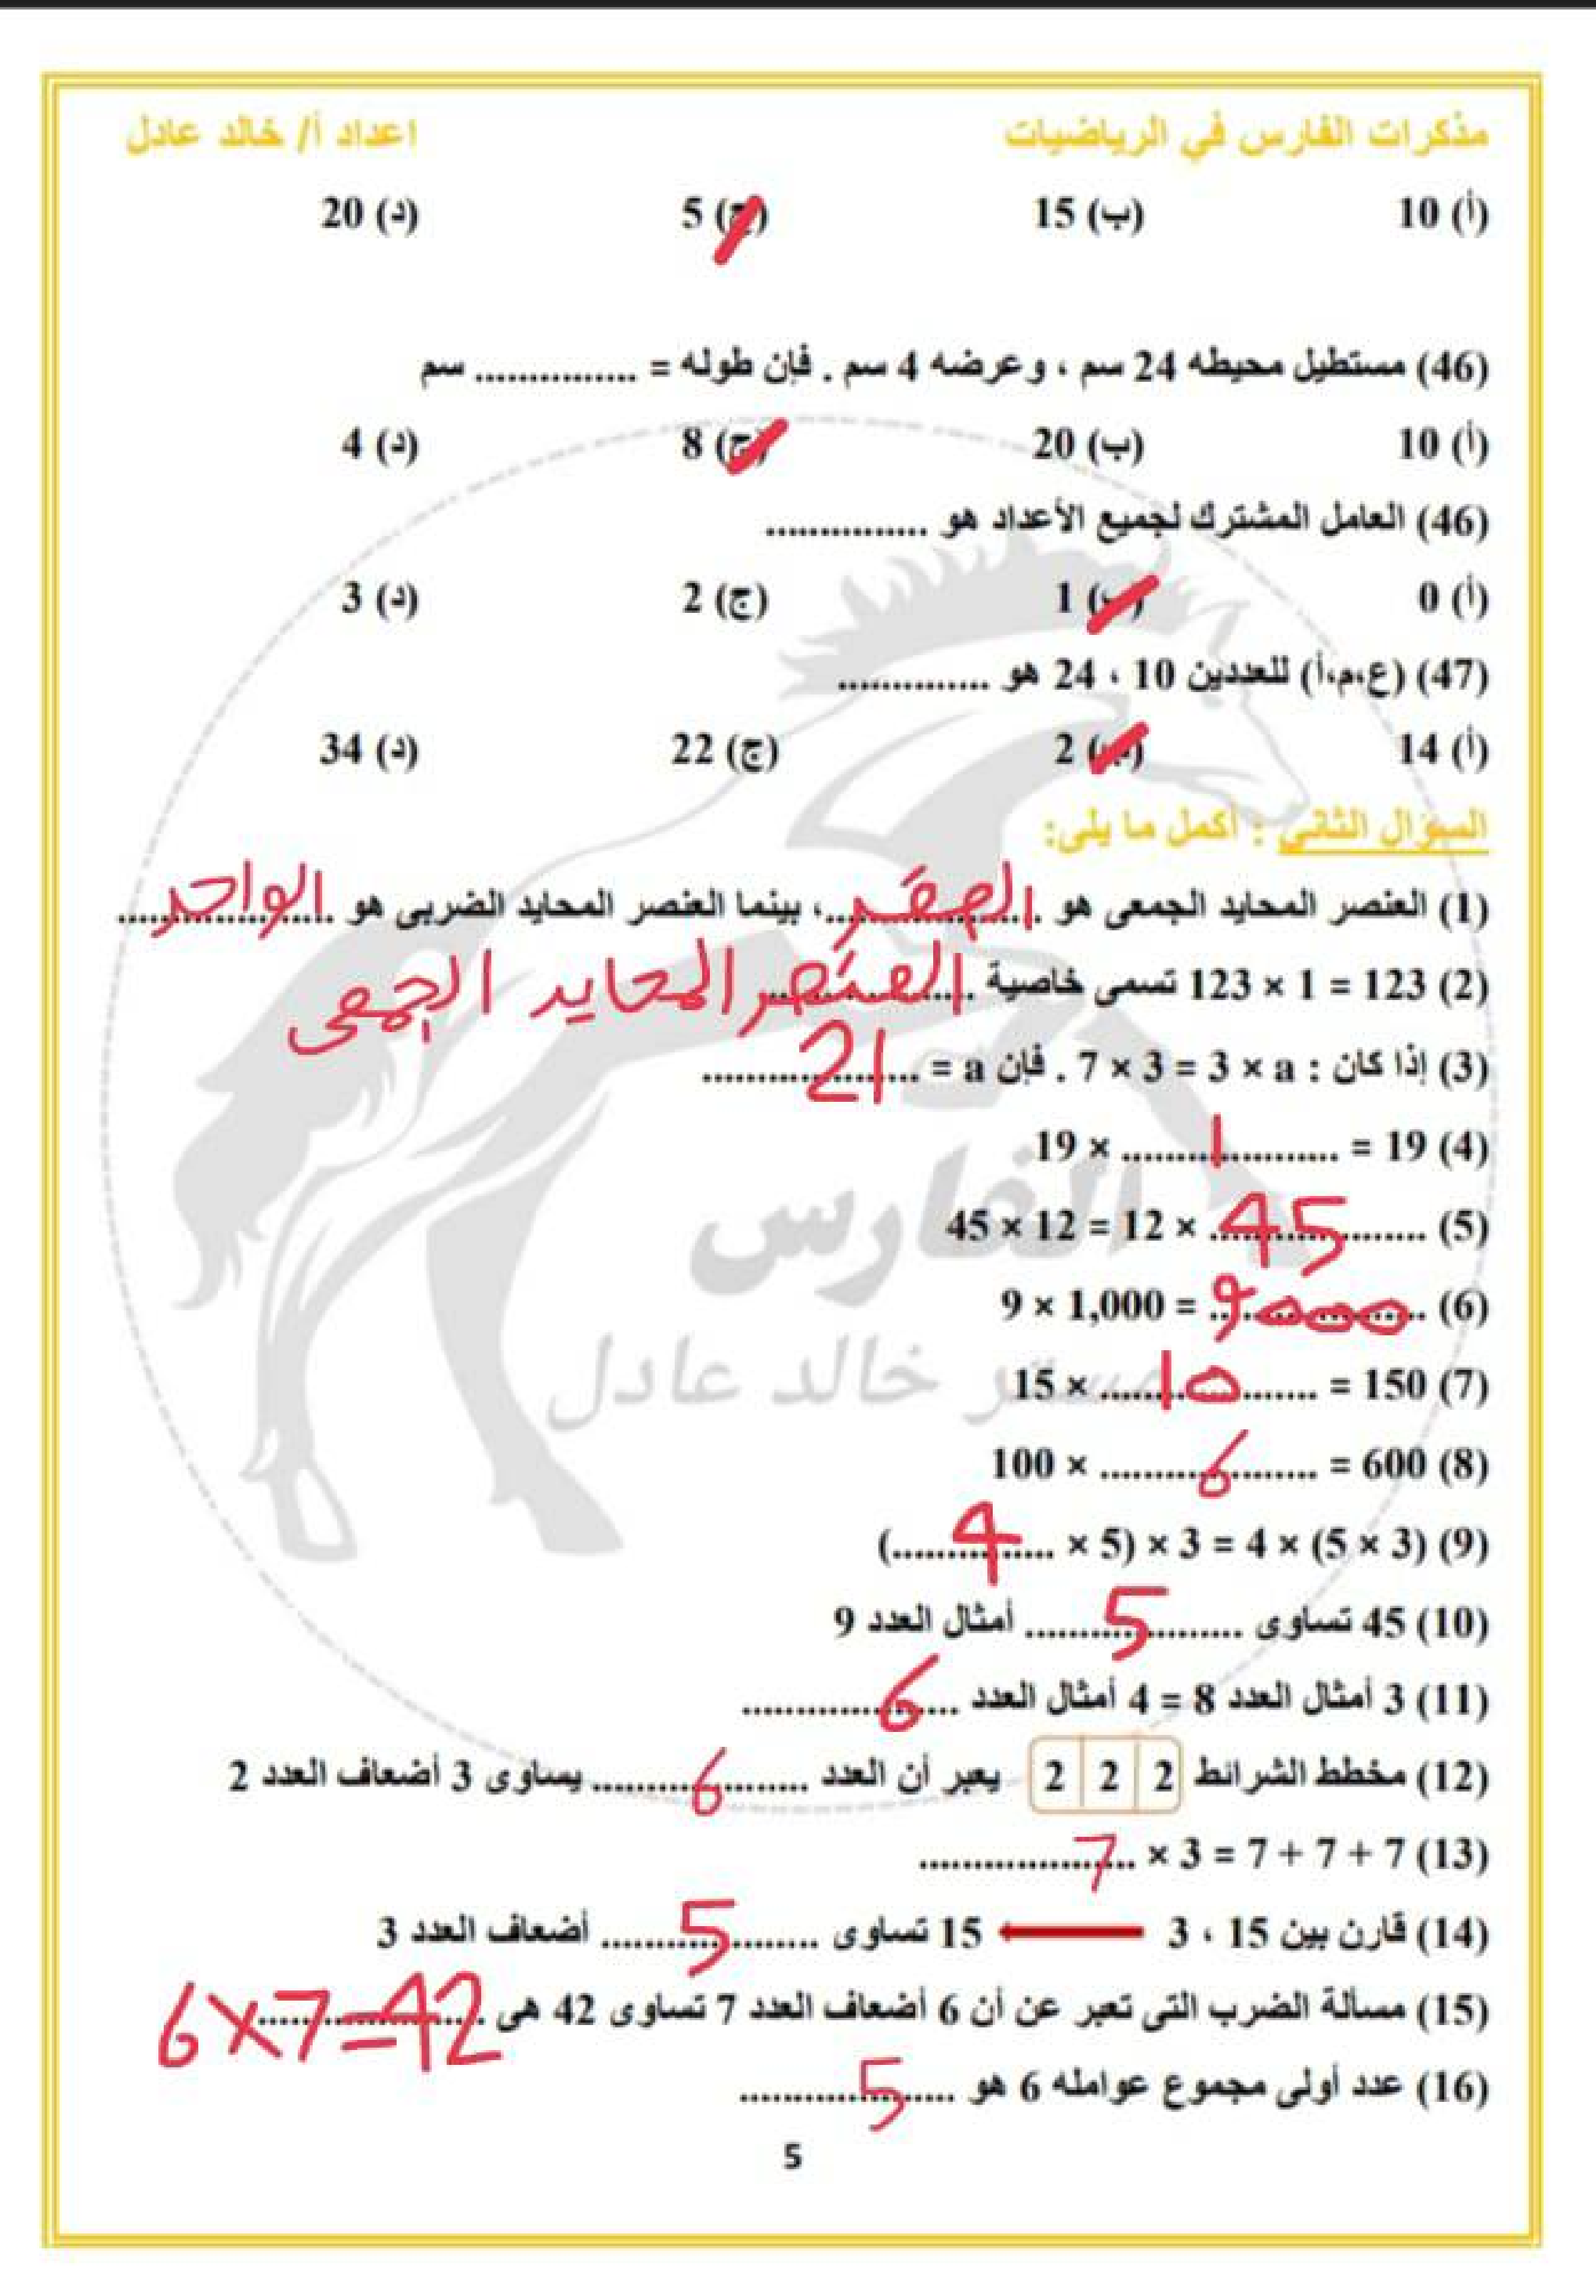 مذكرات الفارس في الرياضيات اعداد أ/ خالد عادل
(أ) 10 (ب) 15 (ج) 5 (د) 20
(46) مستطيل محيطه 24 سم ، وعرضه 4 سم . فإن طوله = ............... سم
(أ) 10 (ب) 20 (ج) 8 (د) 4
(46) العامل المشترك لجميع الأعداد هو ...............
(أ) 0 (ب) 1 (ج) 2 (د) 3
(47) (ع،م،أ) للعددين 10 ، 24 هو ..............
(أ) 14 (ب) 2 (ج) 22 (د) 34
السؤال الثاني : أكمل ما يلى:
(1) العنصر المحايد الجمعى هو الصفر، بينما العنصر المحايد الضربى هو الواحد
(2) 123 × 1 = 123 تسمى خاصية العنصر المحايد الجمعى
(3) إذا كان : 7 × 3 = 3 × a . فإن a = 21
(4) 19 × 1 = 19
(5) 45 × 12 = 12 × 45
(6) 9 × 1,000 = 9000
(7) 15 × 10 = 150
(8) 100 × 6 = 600
(9) (4 × 5) × 3 = 4 × (5 × 3)
(10) 45 تساوى 5 أمثال العدد 9
(11) 3 أمثال العدد 8 = 4 أمثال العدد 6
(12) مخطط الشرائط 2 2 2 يعبر أن العدد 6 يساوى 3 أضعاف العدد 2
(13) 7 + 7 + 7 = 3 × 7
(14) قارن بين 15 ، 3 ← 15 تساوى 5 أضعاف العدد 3
(15) مسألة الضرب التى تعبر عن أن 6 أضعاف العدد 7 تساوى 42 هى 6×7=42
(16) عدد أولى مجموع عوامله 6 هو 5
الفارس
مستر خالد عادل
5